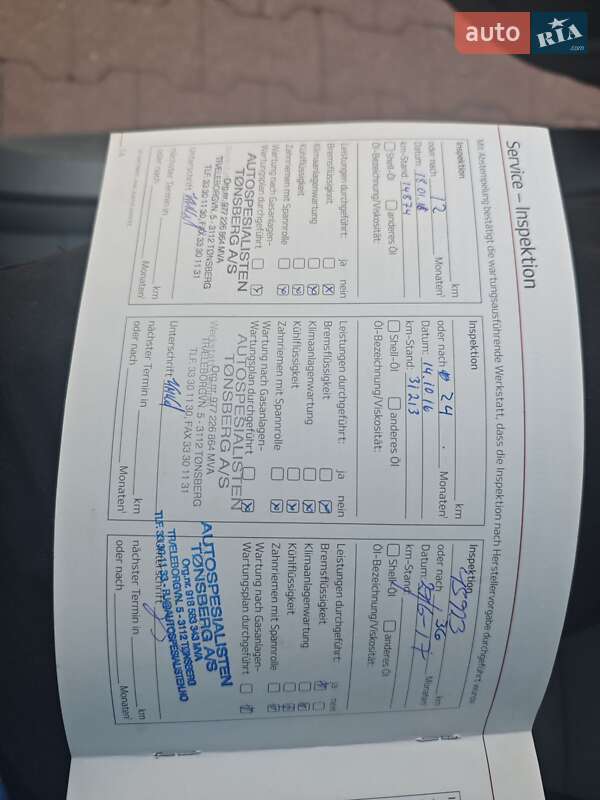 auto RIA .com
Service – Inspektion
Mit Abstempelung bestätigt die wartungsausführende Werkstatt, dass die Inspektion nach Herstellervorgabe durchgeführt wurde
Inspektion
km
oder nach 12 Monaten¹
km-Stand: 14874
Shell-Öl anderes Öl
Öl-Bezeichnung/Viskosität:
Leistungen durchgeführt: ja nein
Bremsflüssigkeit
Klimaanlagenwartung
Kühlflüssigkeit
Zahnriemen mit Spannrolle
Wartung nach Gasanlagen-
Wartungsplan durchgeführt
AUTOSPESIALISTEN
TØNSBERG A/S
Org.nr. 977 226 864 MVA
TRÆLEBORGVN. 5 - 3112 TØNSBERG
TLF. 33 30 11 30, FAX 33 30 11 31
Unterschrift
nächster Termin in km
oder nach Monaten¹
Inspektion
km
oder nach 24 Monaten¹
Datum: 14.10.16
km-Stand: 31213
Shell-Öl anderes Öl
Öl-Bezeichnung/Viskosität:
Leistungen durchgeführt: ja nein
Bremsflüssigkeit
Klimaanlagenwartung
Kühlflüssigkeit
Zahnriemen mit Spannrolle
Wartung nach Gasanlagen-
Wartungsplan durchgeführt
AUTOSPESIALISTEN
TØNSBERG A/S
Org.nr. 977 226 864 MVA
TRÆLEBORGVN. 5 - 3112 TØNSBERG
TLF. 33 30 11 30, FAX 33 30 11 31
Unterschrift
nächster Termin in km
oder nach Monaten¹
Inspektion
km
oder nach 36 Monaten¹
Datum:
km-Stand:
Shell-Öl anderes Öl
Öl-Bezeichnung/Viskosität:
Leistungen durchgeführt: ja nein
Bremsflüssigkeit
Klimaanlagenwartung
Kühlflüssigkeit
Zahnriemen mit Spannrolle
Wartung nach Gasanlagen-
Wartungsplan durchgeführt
AUTOSPESIALISTEN
TØNSBERG A/S
Org.nr. 918 583 343 MVA
TRÆLEBORGVN. 5 - 3112 TØNSBERG
nächster Termin in km
oder nach Monaten¹